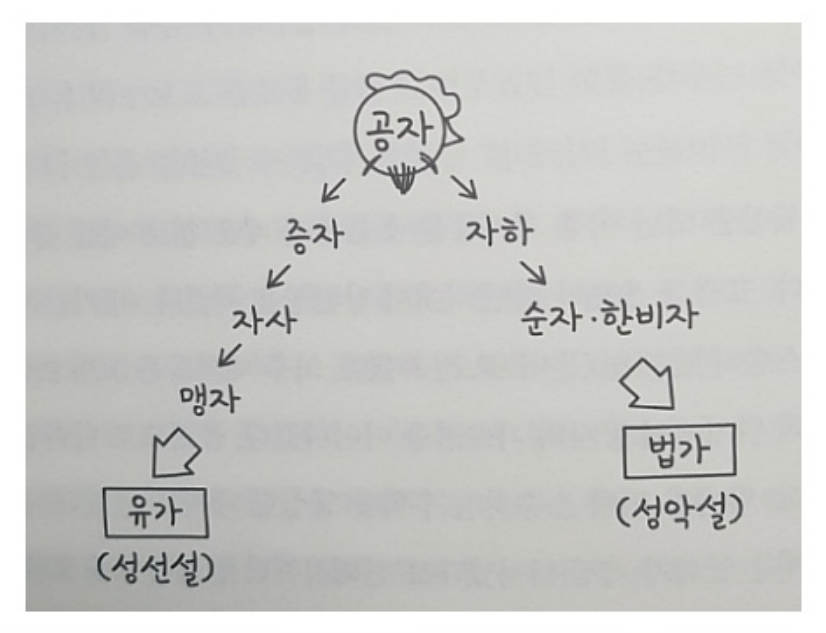 공자
증자
자하
자사
순자·한비자
맹자
법가
유가
(성악설)
(성선설)